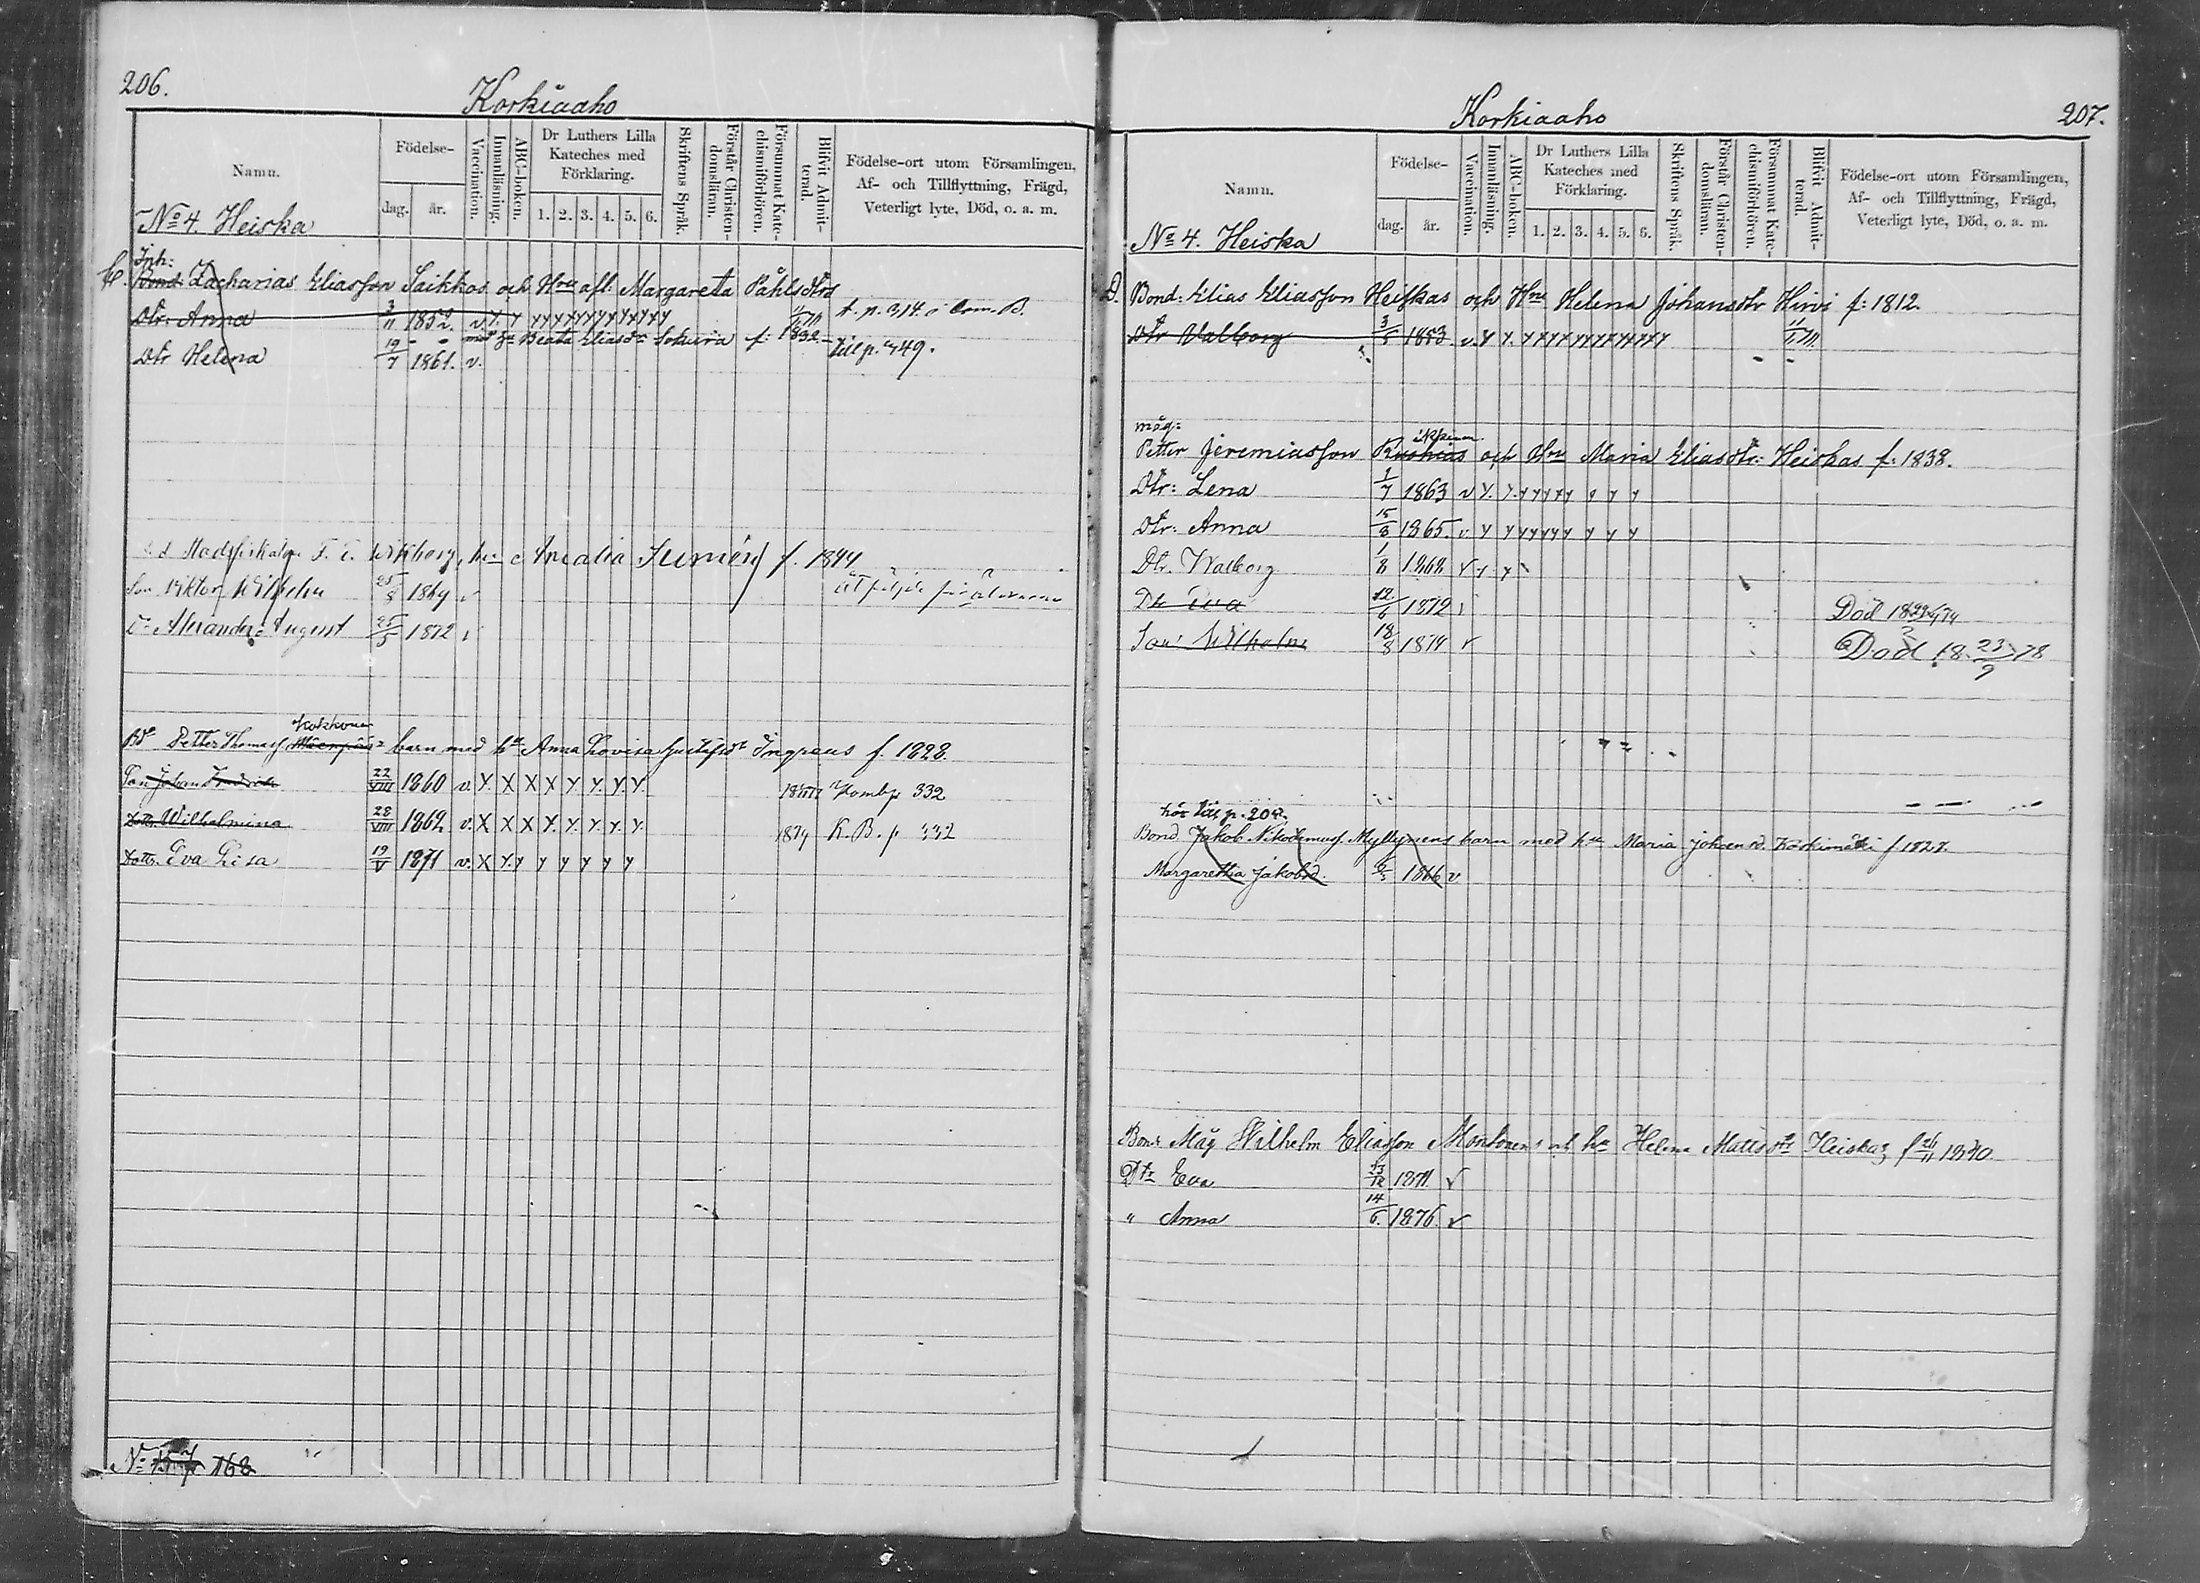 206.
Korkiaaho
Namn.
Födelse-
dag.
år.
Vaccination.
Innanläsning.
ABC-boken.
Dr Luthers Lilla
Kateches med
Förklaring.
1. 2. 3. 4. 5. 6.
Skriftens Språk.
Förstår Christen-
domsläran.
Försummat Kate-
chismiförhören.
Blifvit Admit-
terad.
Födelse-ort utom Församlingen,
Af- och Tillflyttning, Frägd,
Veterligt lyte, Död, o. a. m.
No 4. Heiska
Inh:
C. Bond: Zacharias Eliasson Saikkos och Hu afl: Margareta Påhlsdtrs
Dtr: Anna 3/11 1852. v y y y y y y y y y y y y y y t. p. 314 i Com. B.
med 2a Beata Eliasdr Sokura f: 1832
Dtr Helena 19/7 1861. v. till p. 449.
Amalia f. 1844
Son Viktor Wilhelm 25/8 1869 v
Do Alexander August 25/5 1872 v
Kokkonen
Bde Petter Thomass barn med hu Anna Lovisa Gustafsdr Ingraeus f. 1828.
Son Johan Fredrik 22/VIII 1860 v. Y. X X X Y Y. Y. Y. Y. Komb p 332
Dottr. Wilhelmina 28/VIII 1862 v. X X X Y. Y. Y. Y. Y. 1879 K. B. p 332
Dottr. Eva Lisa 19/V 1871 v. X Y. Y Y Y Y Y Y Y
No 157 168
Korkiaaho
207.
Namn.
Födelse-
dag.
år.
Vaccination.
Innanläsning.
ABC-boken.
Dr Luthers Lilla
Kateches med
Förklaring.
1. 2. 3. 4. 5. 6.
Skriftens Språk.
Förstår Christen-
domsläran.
Försummat Kate-
chismiförhören.
Blifvit Admit-
terad.
Födelse-ort utom Församlingen,
Af- och Tillflyttning, Frägd,
Veterligt lyte, Död, o. a. m.
No 4. Heiska
D. Bond: Elias Eliasson Heiskas och Hru Helena Johansdtr Hirvi f: 1812.
Dtr Valborg 3/5 1853. v. y y. y y y y y y y y y y y y
måg:
Petter Jeremiasson och Hru Maria Eliasdtr: Heiskas f: 1838.
Dtr: Lena 1/7 1863 v y. y. y y y y y y y y
Dtr: Anna 15/8 1865. v. y y y y y y y y y y
Dtr. Walborg 1/8 1868 v y y
Dtr Eva 12/6 1872 v Död
Son Wilhelm 18/8 1874 v Död 18 23/9 78
hör till p. 208.
Bond Jakob Nikodemuss. Myllynens barn med hu Maria Johansd. f 1827.
Margaretha Jakobsd. 1866 v
Bond Måg Wilhelm Eliasson Montonen och hu Helena Mattsdtr Heiskas
Dtr Eva 1871. v
" Anna 14/6. 1876. v